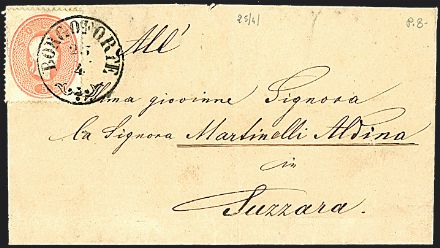 25/4/
P.B-
BORGOFORTE
25
4
All'
Ima giovinne Signora
la Signora Martinelli Aldina
in
Suzzara.